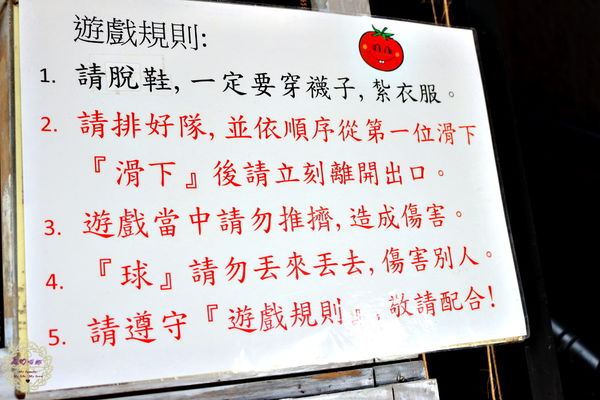 遊戲規則:
1. 請脫鞋, 一定要穿襪子, 紮衣服。
2. 請排好隊, 並依順序從第一位滑下
『滑下』後請立刻離開出口。
3. 遊戲當中請勿推擠, 造成傷害。
4. 『球』請勿丟來丟去, 傷害別人。
5. 請遵守『遊戲規則』, 敬請配合!